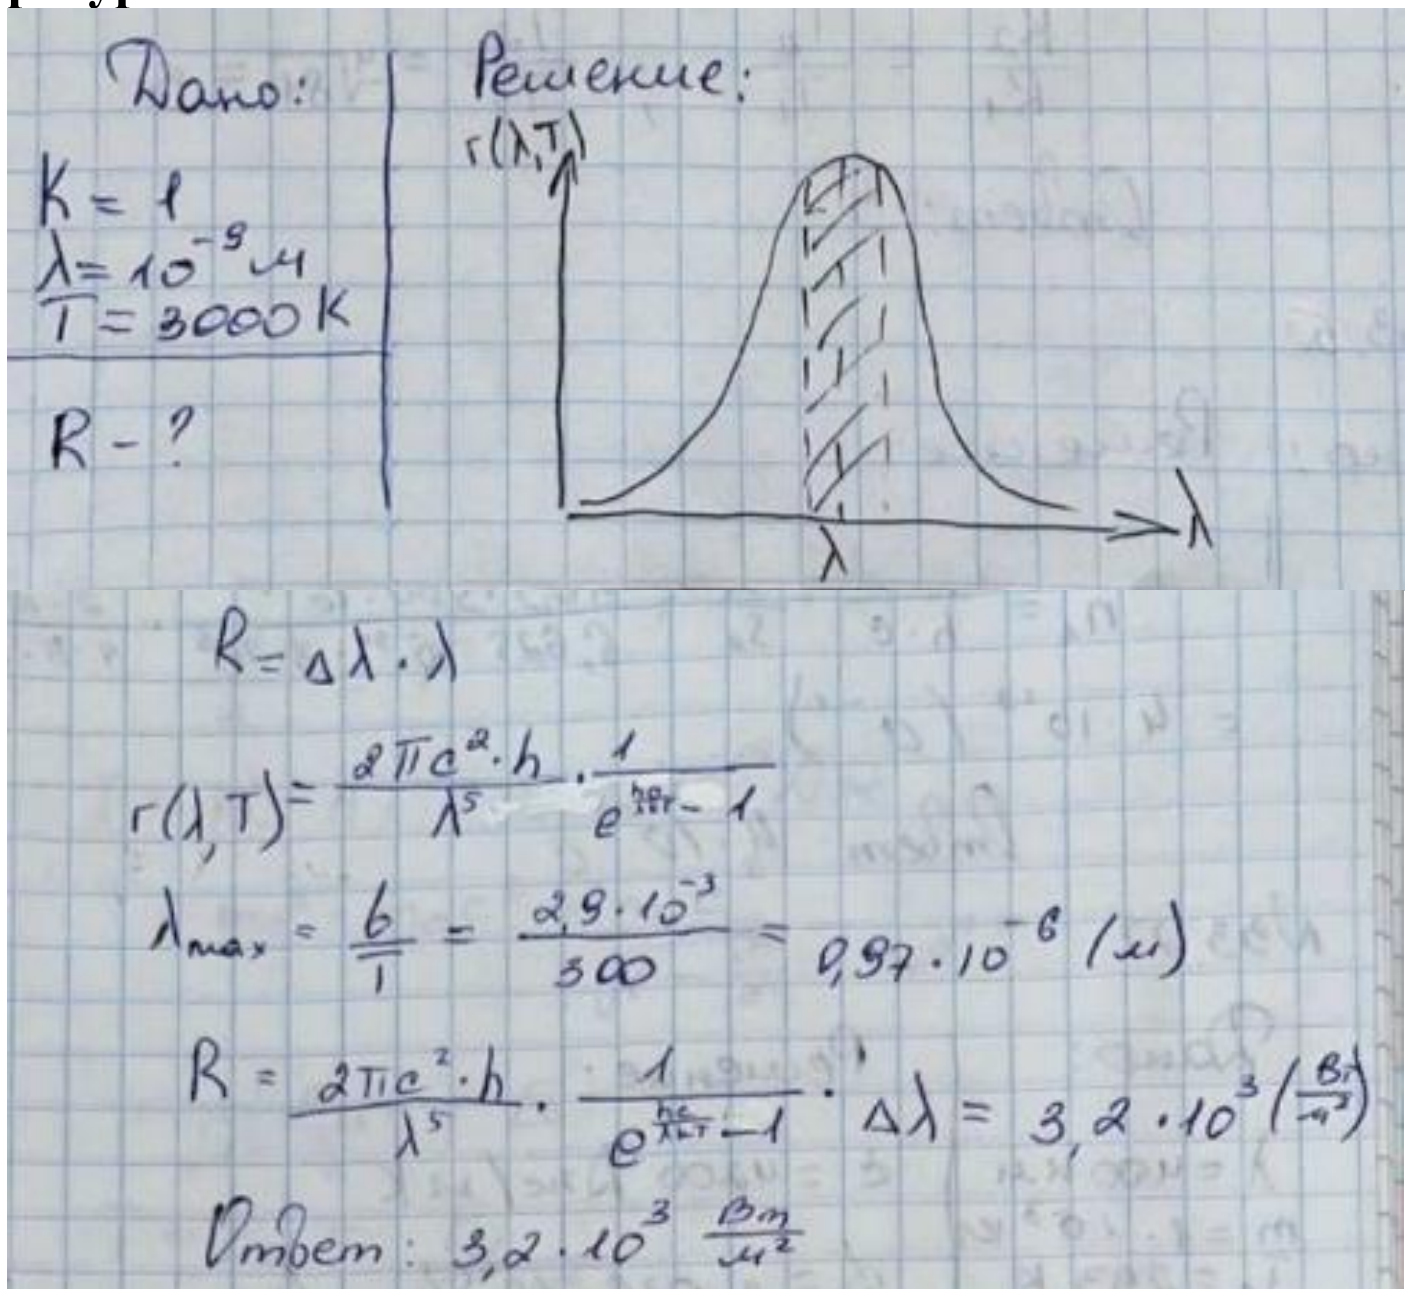 Дано:
K = 1
λ = 10⁻⁹ м
T = 3000 K
R - ?
Решение:
r(λ,T)
λ
λ
R = Δλ · λ
r(λ,T) = 2πc²·h / λ⁵ · 1 / e^(hc/λkT) - 1
λmax = b / T = 2,9·10⁻³ / 300 = 0,97·10⁻⁶ (м)
R = 2πc²·h / λ⁵ · 1 / e^(hc/λkT) - 1 · Δλ = 3,2·10³ (Вт/м²)
Ответ: 3,2·10³ Вт/м²